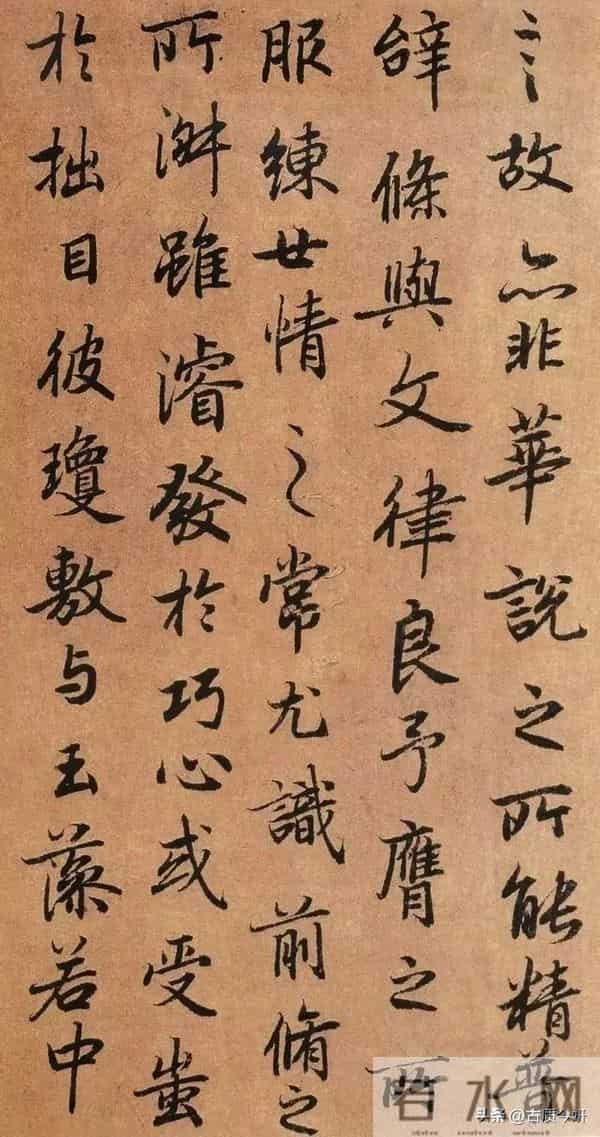 言故亦非華說之所能精普
辭條與文律良予膺之所
服練世情之常尤識前脩之
所淋雖濬發於巧心或受蚩
於拙目彼瓊敷与玉藻若中
水网
头条 @古质今妍